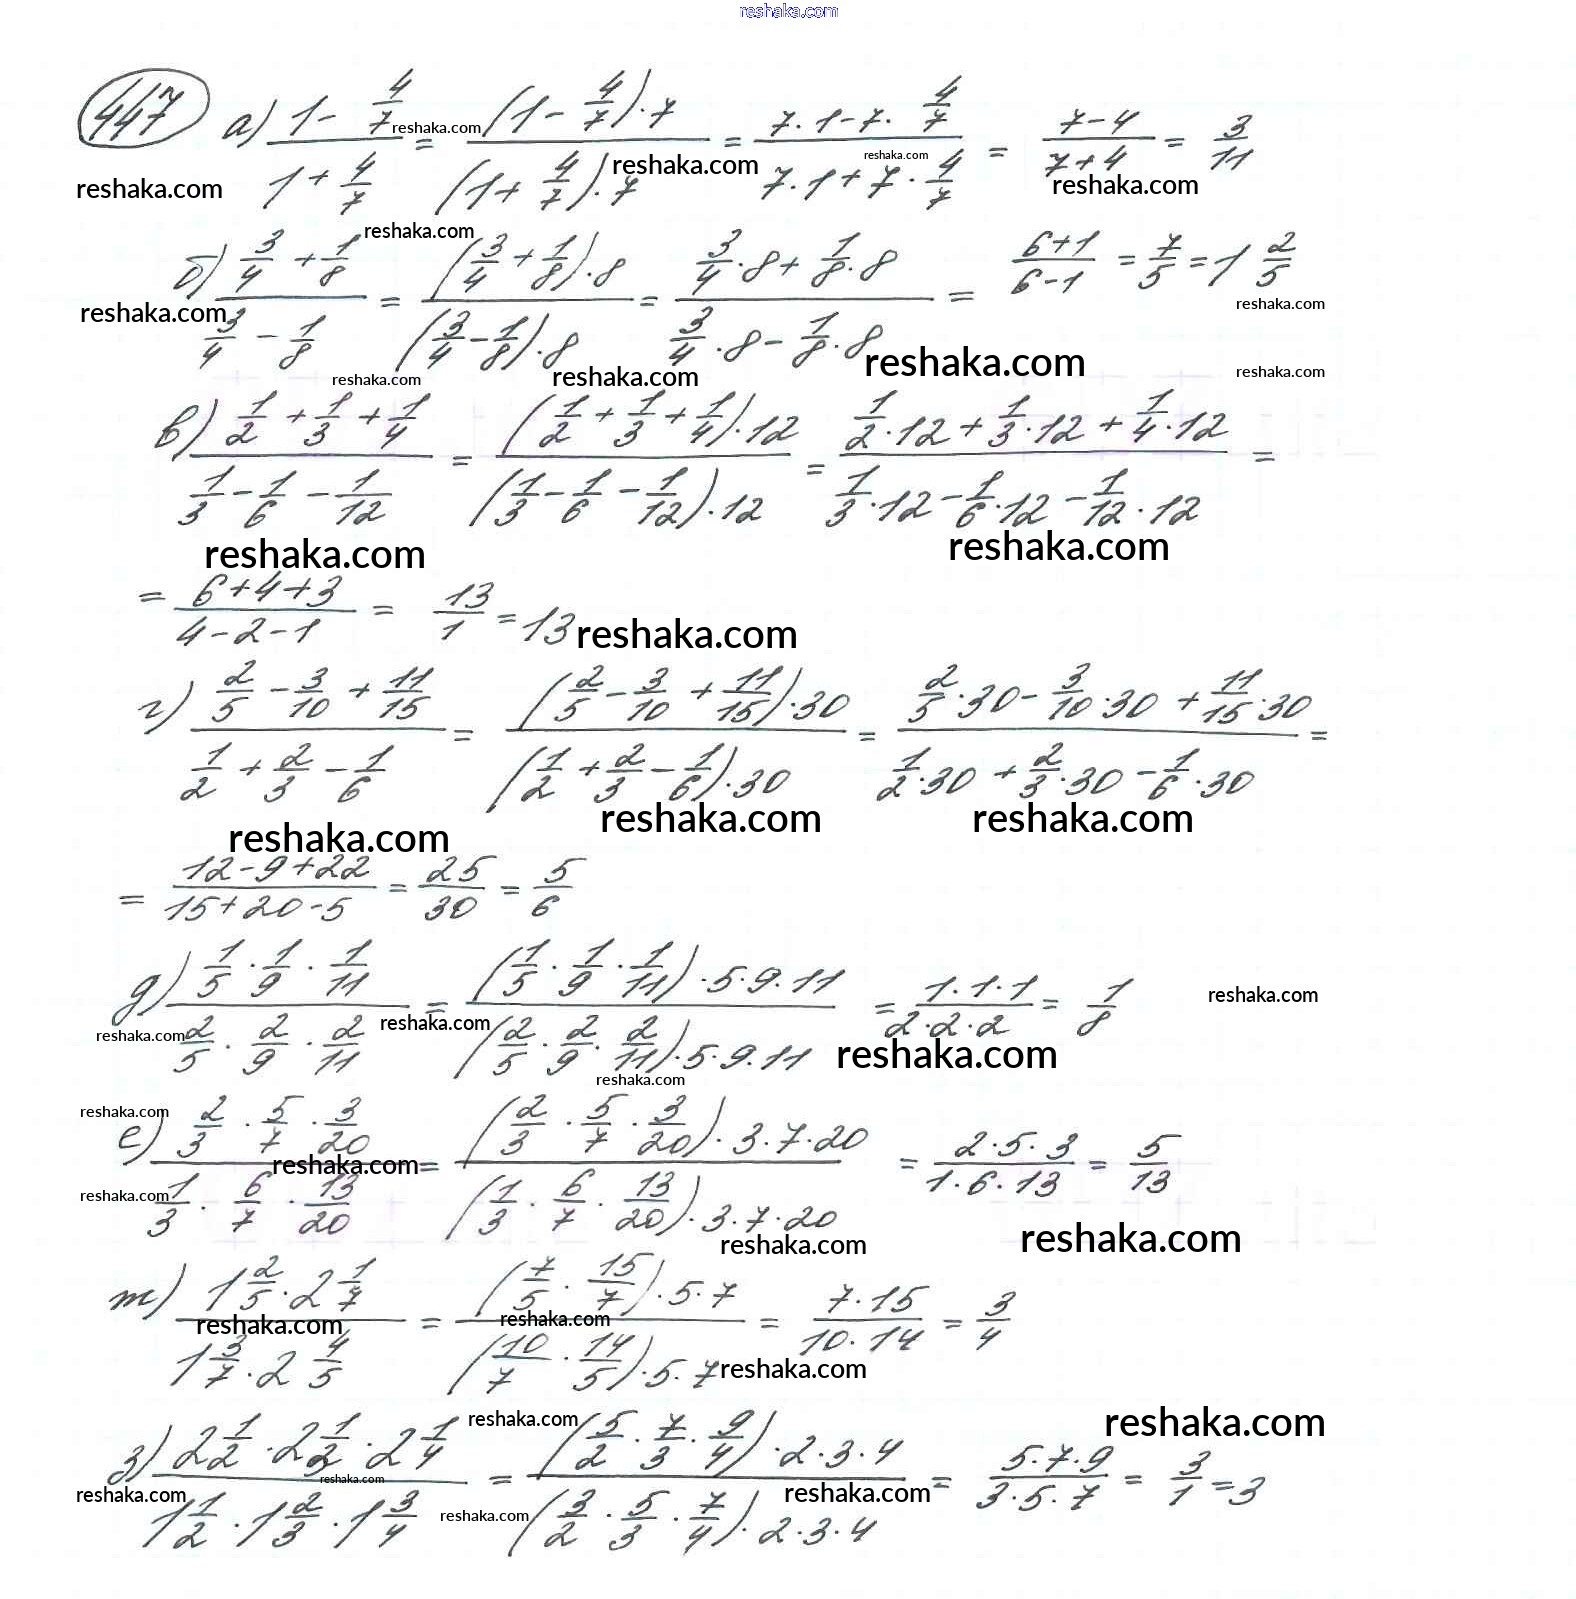 reshaka.com
447 а) (1 - 4/7)/(1 + 4/7) = ((1 - 4/7)·7)/((1 + 4/7)·7) = (7·1 - 7·4/7)/(7·1 + 7·4/7) = (7-4)/(7+4) = 3/11
reshaka.com reshaka.com reshaka.com reshaka.com reshaka.com
б) (3/4 + 1/8)/(3/4 - 1/8) = ((3/4 + 1/8)·8)/((3/4 - 1/8)·8) = (3/4·8 + 1/8·8)/(3/4·8 - 1/8·8) = (6+1)/(6-1) = 7/5 = 1 2/5
reshaka.com reshaka.com reshaka.com reshaka.com reshaka.com reshaka.com reshaka.com
в) (1/2 + 1/3 + 1/4)/(1/3 - 1/6 - 1/12) = ((1/2 + 1/3 + 1/4)·12)/((1/3 - 1/6 - 1/12)·12) = (1/2·12 + 1/3·12 + 1/4·12)/(1/3·12 - 1/6·12 - 1/12·12) =
reshaka.com reshaka.com
= (6+4+3)/(4-2-1) = 13/1 = 13 reshaka.com
г) (2/5 - 3/10 + 11/15)/(1/2 + 2/3 - 1/6) = ((2/5 - 3/10 + 11/15)·30)/((1/2 + 2/3 - 1/6)·30) = (2/5·30 - 3/10·30 + 11/15·30)/(1/2·30 + 2/3·30 - 1/6·30) =
reshaka.com reshaka.com reshaka.com
= (12-9+22)/(15+20-5) = 25/30 = 5/6
д) (1/5·1/9·1/11)/(2/5·2/9·2/11) = ((1/5·1/9·1/11)·5·9·11)/((2/5·2/9·2/11)·5·9·11) = (1·1·1)/(2·2·2) = 1/8
reshaka.com reshaka.com reshaka.com reshaka.com reshaka.com
е) (2/3·5/7·3/20)/(1/3·6/7·13/20) = ((2/3·5/7·3/20)·3·7·20)/((1/3·6/7·13/20)·3·7·20) = (2·5·3)/(1·6·13) = 5/13
reshaka.com reshaka.com reshaka.com reshaka.com reshaka.com
т) (1 2/5·2 1/7)/(1 3/7·2 4/5) = ((7/5·15/7)·5·7)/((10/7·14/5)·5·7) = (7·15)/(10·14) = 3/4
reshaka.com reshaka.com reshaka.com
з) (2 1/2·2 1/3·2 1/4)/(1 1/2·1 2/3·1 3/4) = ((5/2·7/3·9/4)·2·3·4)/((3/2·5/3·7/4)·2·3·4) = (5·7·9)/(3·5·7) = 3/1 = 3
reshaka.com reshaka.com reshaka.com reshaka.com reshaka.com reshaka.com